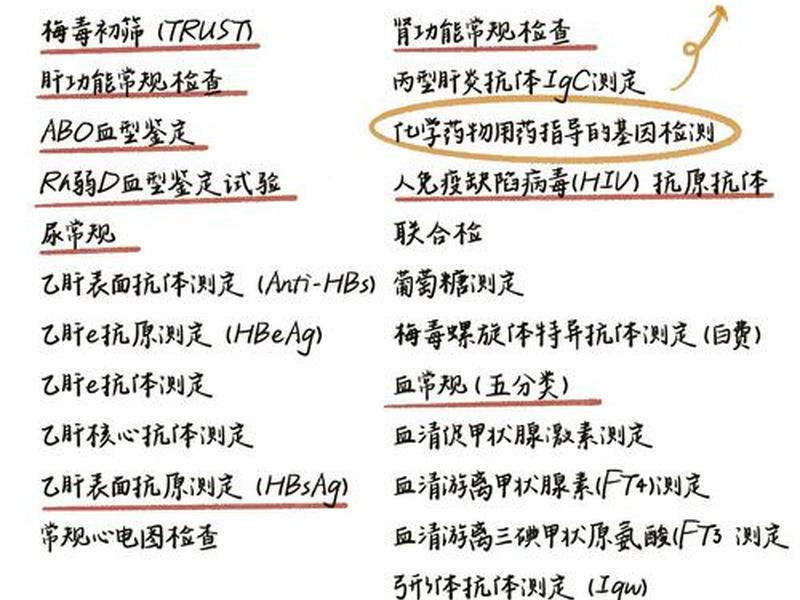 梅毒初筛（TRUST）
肝功能常规检查
ABO血型鉴定
Rh弱D血型鉴定试验
尿常规
乙肝表面抗体测定（Anti-HBs）
乙肝e抗原测定（HBeAg）
乙肝e抗体测定
乙肝核心抗体测定
乙肝表面抗原测定（HBsAg）
常规心电图检查
肾功能常规检查
丙型肝炎抗体IgC测定
化学药物用药指导的基因检测
人免疫缺陷病毒(HIV）抗原抗体
联合检
葡萄糖测定
梅毒螺旋体特异抗体测定（自费）
血常规（五分类）
血清促甲状腺激素测定
血清游离甲状腺素(FT4)测定
血清游离三碘甲状原氨酸(FT3 测定
抗体测定（Igw）